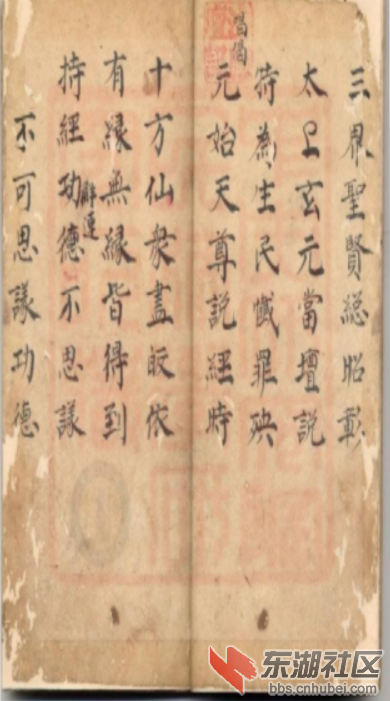 三界聖賢總昭彰
太上玄元當壇説
特為生民懺罪殃
唱偈
元始天尊説經時
十方仙衆盡皈依
有緣無緣皆得到
解運
持經功德不思議
不可思議功德
东湖社区
bbs.cnhubei.com